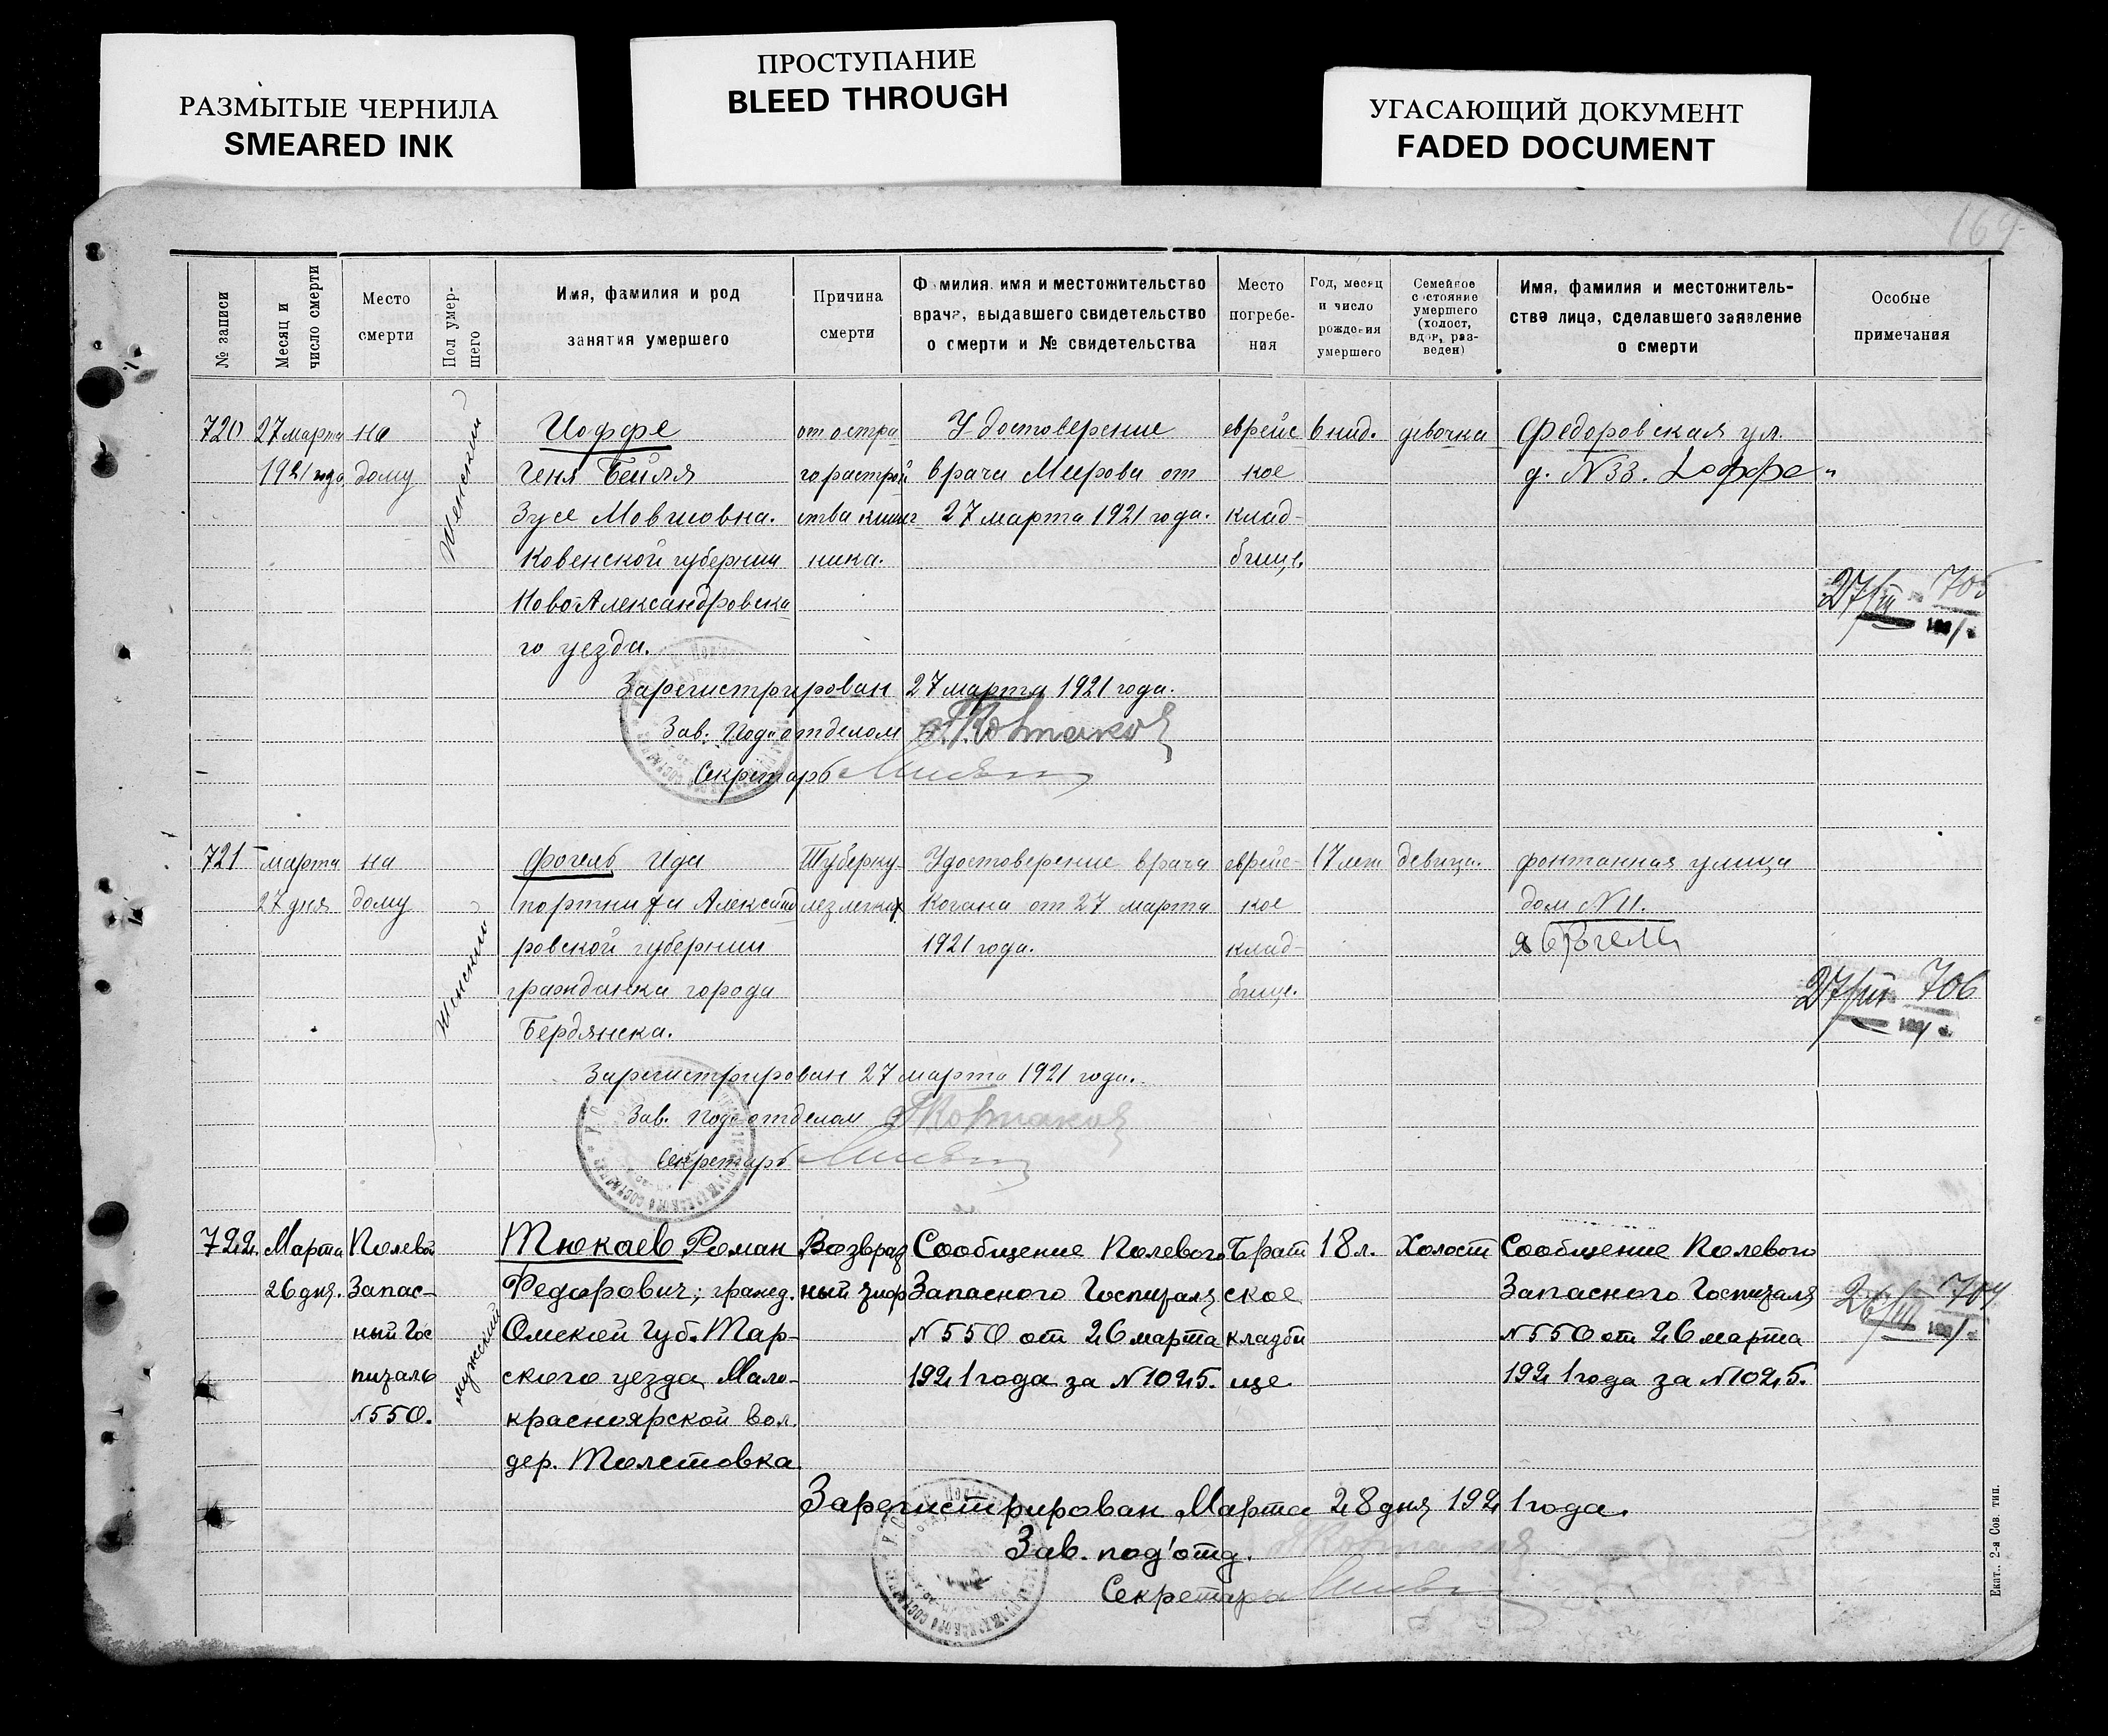 РАЗМЫТЫЕ ЧЕРНИЛА
SMEARED INK
ПРОСТУПАНИЕ
BLEED THROUGH
УГАСАЮЩИЙ ДОКУМЕНТ
FADED DOCUMENT
169
№ записи
Месяц и
число смерти
Место
смерти
Пол умер-
шего
Имя, фамилия и род
занятия умершего
Причина
смерти
Фамилия, имя и местожительство
врача, выдавшего свидетельство
о смерти и № свидетельства
Место
погребе-
ния
Год, месяц
и число
рождения
умершего
Семейное
состояние
умершего
(холост,
вдов, раз-
веден)
Имя, фамилия и местожитель-
ства лица, сделавшего заявление
о смерти
Особые
примечания
720
27 марта
1921 года
на
дому
женский
Иоффе
Геня Бейля
Зусе Мовшовна.
Ковенской губернии
Ново Александровска
го уезда.
от остра
го растрой
ства кишеч
ника.
Удостоверение
врача Меерова от
27 марта 1921 года.
еврейс
кое
клад-
бище
6 нид.
девочка
Федоровская ул.
д. N 33. Иоффе
27/III 705
Зарегистрирован 27 марта 1921 года.
Зав. Подотделом
Секретарь
721
марта
27 дня
на
дому
женский
Фогель Ида
портниха Александ
ровской губернии
гражданка города
Бердянска.
Туберку-
лез легких
Удостоверение врача
Когана от 27 марта
1921 года.
еврейс-
кое
клад-
бище.
17 лет
девица.
Фонтанная улица
дом N 11.
27/III 706
Зарегистрирован 27 марта 1921 года.
Зав. Подотделом
Секретарь
722
Марта
26 дня.
Полевой
Запас-
ный Гос
питаль
N 550.
мужский
Тюкаев Роман
Федорович; гражд.
Омской Губ. Тар-
ского уезда Мало-
красноярской вол.
дер. Толстовка
Возврат
ный тиф
Сообщение Полевого
Запасного Госпиталя
N 550 от 26 марта
1921 года за N 1025.
Брат
ское
кладби
ще
18 л.
Холост
Сообщение Полевого
Запасного Госпиталя
N 550 от 26 марта
1921 года за N 1025.
26/III
Зарегистрирован Марта 28 дня 1921 года.
Зав. под'отд.
Секретарь
Екат., 2-я Сов. тип.